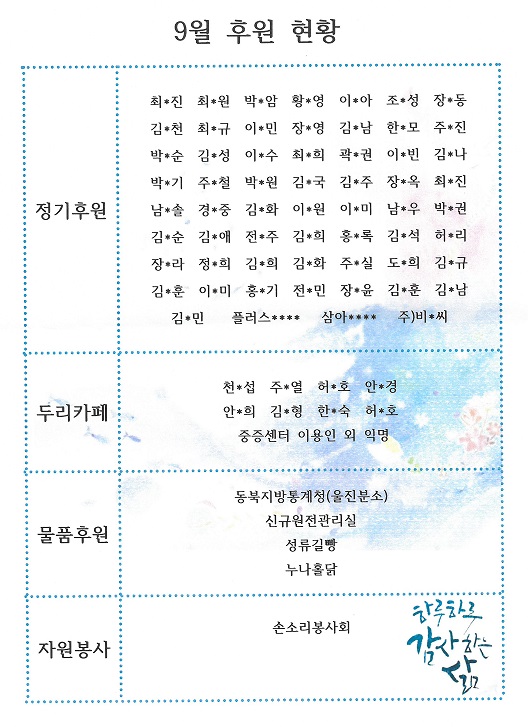 9월 후원 현황
정기후원
최*진 최*원 박*암 황*영 이*아 조*성 장*동
김*천 최*규 이*민 장*영 김*남 한*모 주*진
박*순 김*성 이*수 최*희 곽*권 이*빈 김*나
박*기 주*철 박*원 김*국 김*주 장*옥 최*진
남*솔 경*중 김*화 이*원 이*미 남*우 박*권
김*순 김*애 전*주 김*희 홍*록 김*석 허*리
장*라 정*희 김*희 김*화 주*실 도*희 김*규
김*훈 이*미 홍*기 전*민 장*윤 김*훈 김*남
김*민 플러스**** 삼아**** 주)비*씨
두리카페
천*섭 주*열 허*호 안*경
안*희 김*형 한*숙 허*호
중증센터 이용인 외 익명
물품후원
동북지방통계청(울진분소)
신규원전관리실
성류길빵
누나홀닭
자원봉사
손소리봉사회
하루하루
감사하는
삶